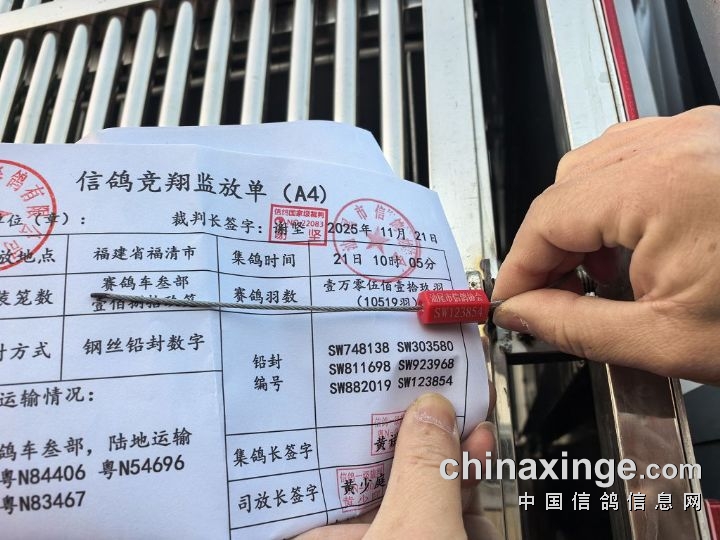 信鸽竞翔监放单（A4）
裁判长签字：谢坚 2025年11月21日
信鸽国家级裁判
NO:22083
谢坚
放地点 福建省福清市 集鸽时间 21日10时05分
笼数 赛鸽车叁部 赛鸽羽数 壹万零伍佰壹拾玖羽
（10519羽）
SW123854
方式 钢丝铅封数字 铅封编号
SW748138 SW303580
SW811698 SW923968
SW882019 SW123854
运输情况：
鸽车叁部，陆地运输
粤N84406 粤N54696
粤N83467
集鸽长签字
司放长签字 黄少庭
chinaxinge.com
中国信鸽信息网